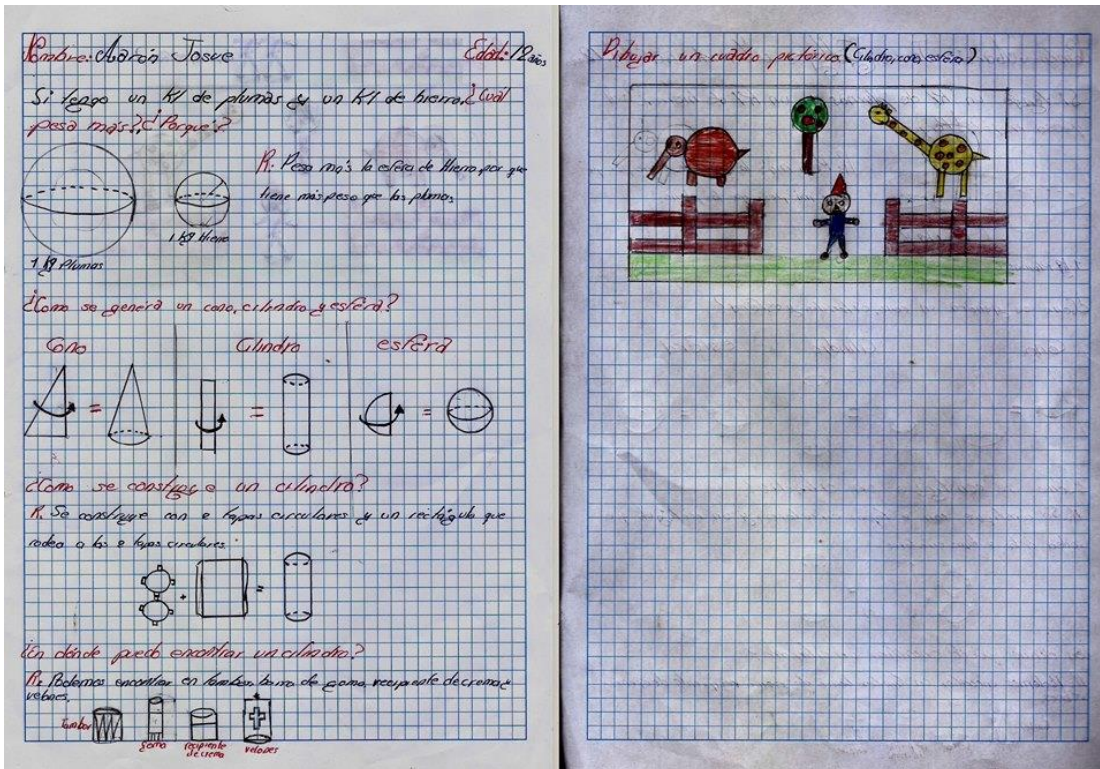 Nombre: Aarón Josue Edad: 12 años
Si tengo un Kl de plumas y un Kl de hierro. ¿Cuál
pesa más? ¿Porqué?
R. Pesa más la esfera de Hierro, por que
tiene más peso que las plumas
1 Kg Hierro
1 Kg Plumas
¿Como se genera un cono, cilindro y esfera?
Cono Cilindro esfera
=
=
=
¿Como se construye un cilindro?
R. Se construye con 2 tapas circulares y un rectángulo que
rodea a las 2 tapas circulares.
+ =
¿En dónde puedo encontrar un cilindro?
R. Podemos encontrar en tambor, barra de goma, recipiente de crema y
velones.
Tambor goma recipiente velones
de crema
Dibujar un cuadro pictórico (Cilindro, cono, esfera)